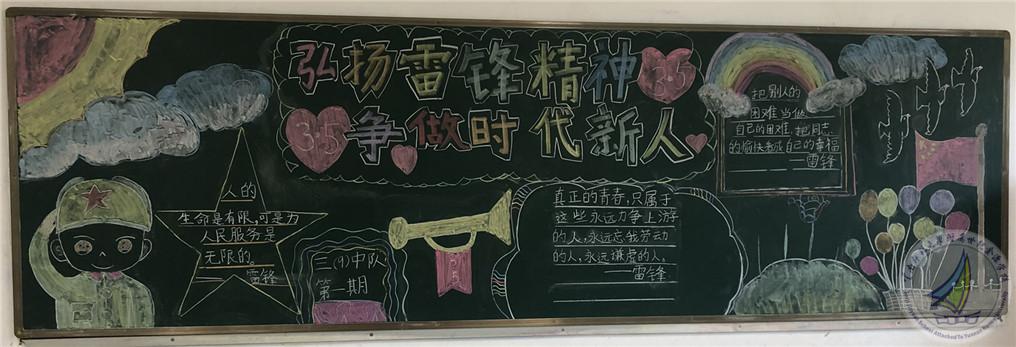 弘扬雷锋精神
3.5
3.5
争做时代新人
人的
生命是有限,可是为
人民服务是
无限的。
雷锋
三(9)中队
第一期
3.5
真正的青春,只属于
这些永远力争上游
的人,永远忘我劳动
的人,永远谦虚的人。
——雷锋
把别人的
困难当做
自己的困难,把同志
的愉快看成自己的幸福
——雷锋